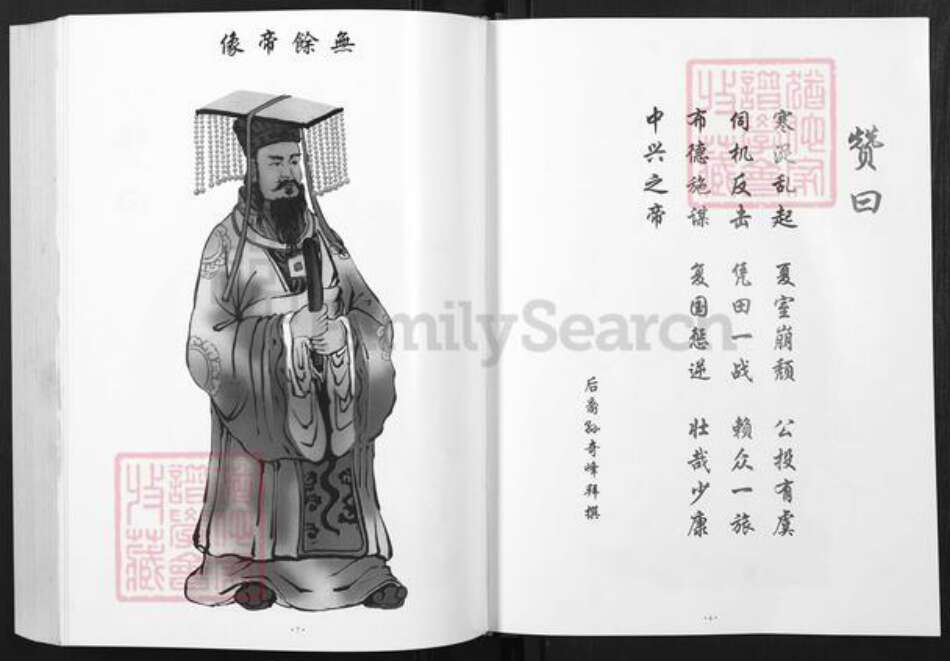 無餘帝像
赞曰
寒浞乱起 夏室崩颓 公投有虞
伺机反击 凭田一战 赖众一旅
布德施谋 复国惩逆 壮哉少康
中兴之帝
后裔孙奇峰拜撰
FamilySearch